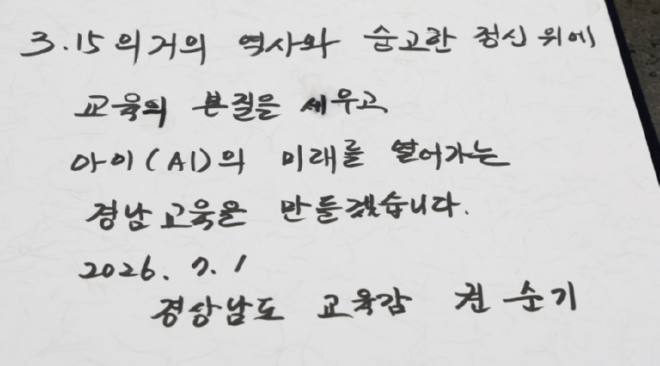 3.15의거의 역사와 숭고한 정신 위에
교육의 본질을 세우고
아이(AI)의 미래를 열어가는
경남교육을 만들겠습니다.
2026. 7. 1
경상남도 교육감 권순기